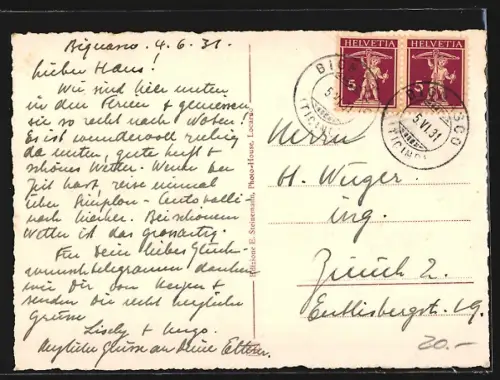 Bignasco. 4.6.31.
Lieber Hans!
Wir sind hier unten
in den Ferien & geniessen
sie so recht nach Noten!
Es ist wundervoll ruhig
da unten, gute Luft &
schönes Wetter. Wenn Du
Zeit hast, reise einmal
über Simplon - Centovalli
nach hierher. Bei schönem
Wetter ist das grossartig.
Für Dein liebes Glück-
wunschtelegramm danken
wir Dir von Herzen &
senden Dir recht herzliche
Grüsse
Lisely & Hugo.
Herzliche Grüsse an Deine Eltern.
Edizione E. Steinemann, Photo-House, Locarno
HELVETIA
HELVETIA
5
5
SCO
5.VI.31
(TICINO)
(TICINO)
Herrn
H. Wüger
ing.
Zürich 2.
Entlisbergst. 19.
20.-